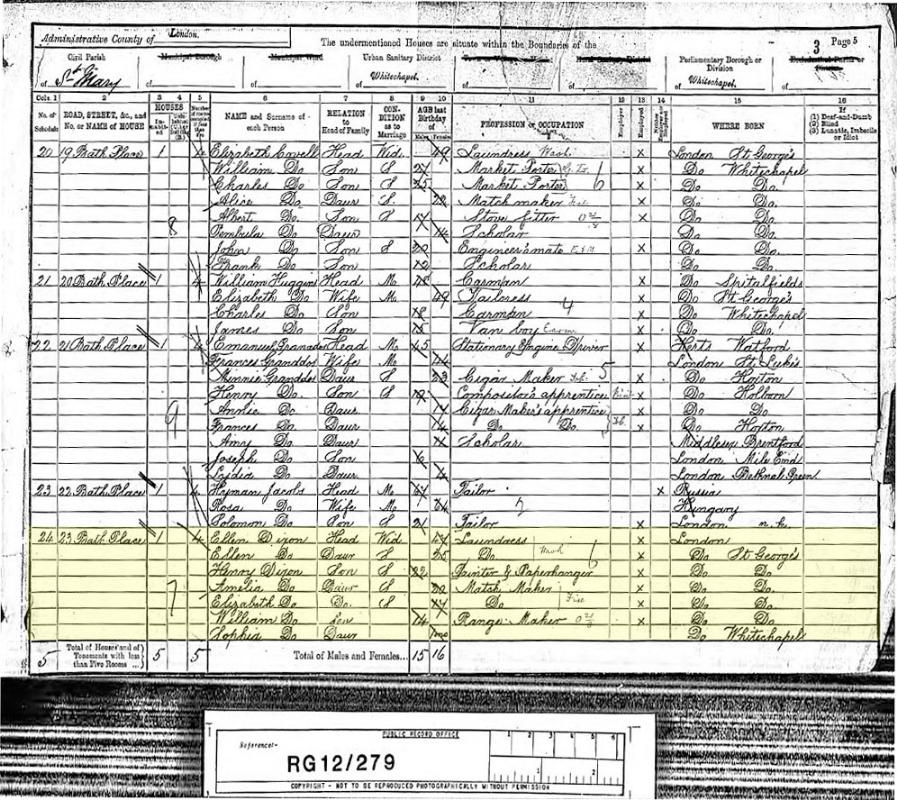 Administrative County of London.
The undermentioned Houses are situate within the Boundaries of the
3 Page 5
Civil Parish
of St. Mary
Municipal Borough
of
Municipal Ward
of
Urban Sanitary District
of Whitechapel
of
Rural Sanitary District
of
Parliamentary Borough or Division
of Whitechapel.
of
Cols. 1 2 3 4 5 6 7 8 9 10 11 12 13 14 15 16
No. of Schedule
ROAD, STREET, &c., and No. or NAME of HOUSE
HOUSES
NAME and Surname of each Person
RELATION to Head of Family
CONDITION as to Marriage
AGE last Birthday of
Males Females
PROFESSION or OCCUPATION
Employer
Employed
WHERE BORN
If (1) Deaf-and-Dumb (2) Blind (3) Lunatic, Imbecile or Idiot
20 19 Bath Place 1 4 Elizabeth Covell Head Wid. 49 Laundress Wash. X London St George's
William Do Son S 27 Market Porter X Do Whitechapel
Charles Do Son S 25 Market Porter 6 X Do Do.
Alice Do Daur S. 22 Match maker X Do Do.
Albert Do. Son S 17 Stove fitter X Do Do
8 Do Daur 14 Scholar Do Do
John Do Son S 20 Engineer's mate X Do Do
Frank Do Son 12 Scholar Do Do
21 20 Bath Place 1 4 William Huggins Head M. Carman X Do Spitalfields
Elizabeth Do Wife M. 49 Tailoress 4 X Do St George's
Charles Do Son 18 Carman X Do Whitechapel
James Do Son Van boy X Do Do.
22 21 Bath Place 1 4 Emanuel Head M. 45 Stationary Engine Driver X Herts Watford
Frances Wife M. 44 London St Luke's
Minnie Daur S 23 Cigar Maker 5 X Do Hoxton
Henry Do. Son S 19 Compositor's apprentice X Do Holborn
9 Annie Do Daur 17 Cigar Maker's apprentice X Do Do
Frances Do Daur Do Do. X Do Hoxton
Amy Do Daur Scholar Middlesex Brentford
Joseph Do Son 6 London Mile End
Lydia Do Daur 4 London Bethnal Green
23 22 Bath Place 1 4 Heyman Jacobs Head M. 67 Tailor X Russia
Rosa Do Wife M. 64 Hungary
Solomon Do Son S 21 Tailor X London n.k.
24 23 Bath Place 1 4 Ellen Dixon Head Wid. 47 Laundress X London
Ellen Do Daur S 25 Do Wash 6 X Do St George's
Henry Dixon Son S 22 Painter & Paperhanger X Do Do.
7 Amelia Do Daur S 20 Match Maker X Do Do
Elizabeth Do Do. S 17 Do X Do Do
William Do Son 14 Range Maker X Do Do
Sophia Do Daur Do Whitechapel
5 Total of Houses and of Tenements with less than Five Rooms ... 5 5 Total of Males and Females... 15 16
PUBLIC RECORD OFFICE
Reference:-
RG12/279
1 2 3 4 5 6
1 2
COPYRIGHT - NOT TO BE REPRODUCED PHOTOGRAPHICALLY WITHOUT PERMISSION